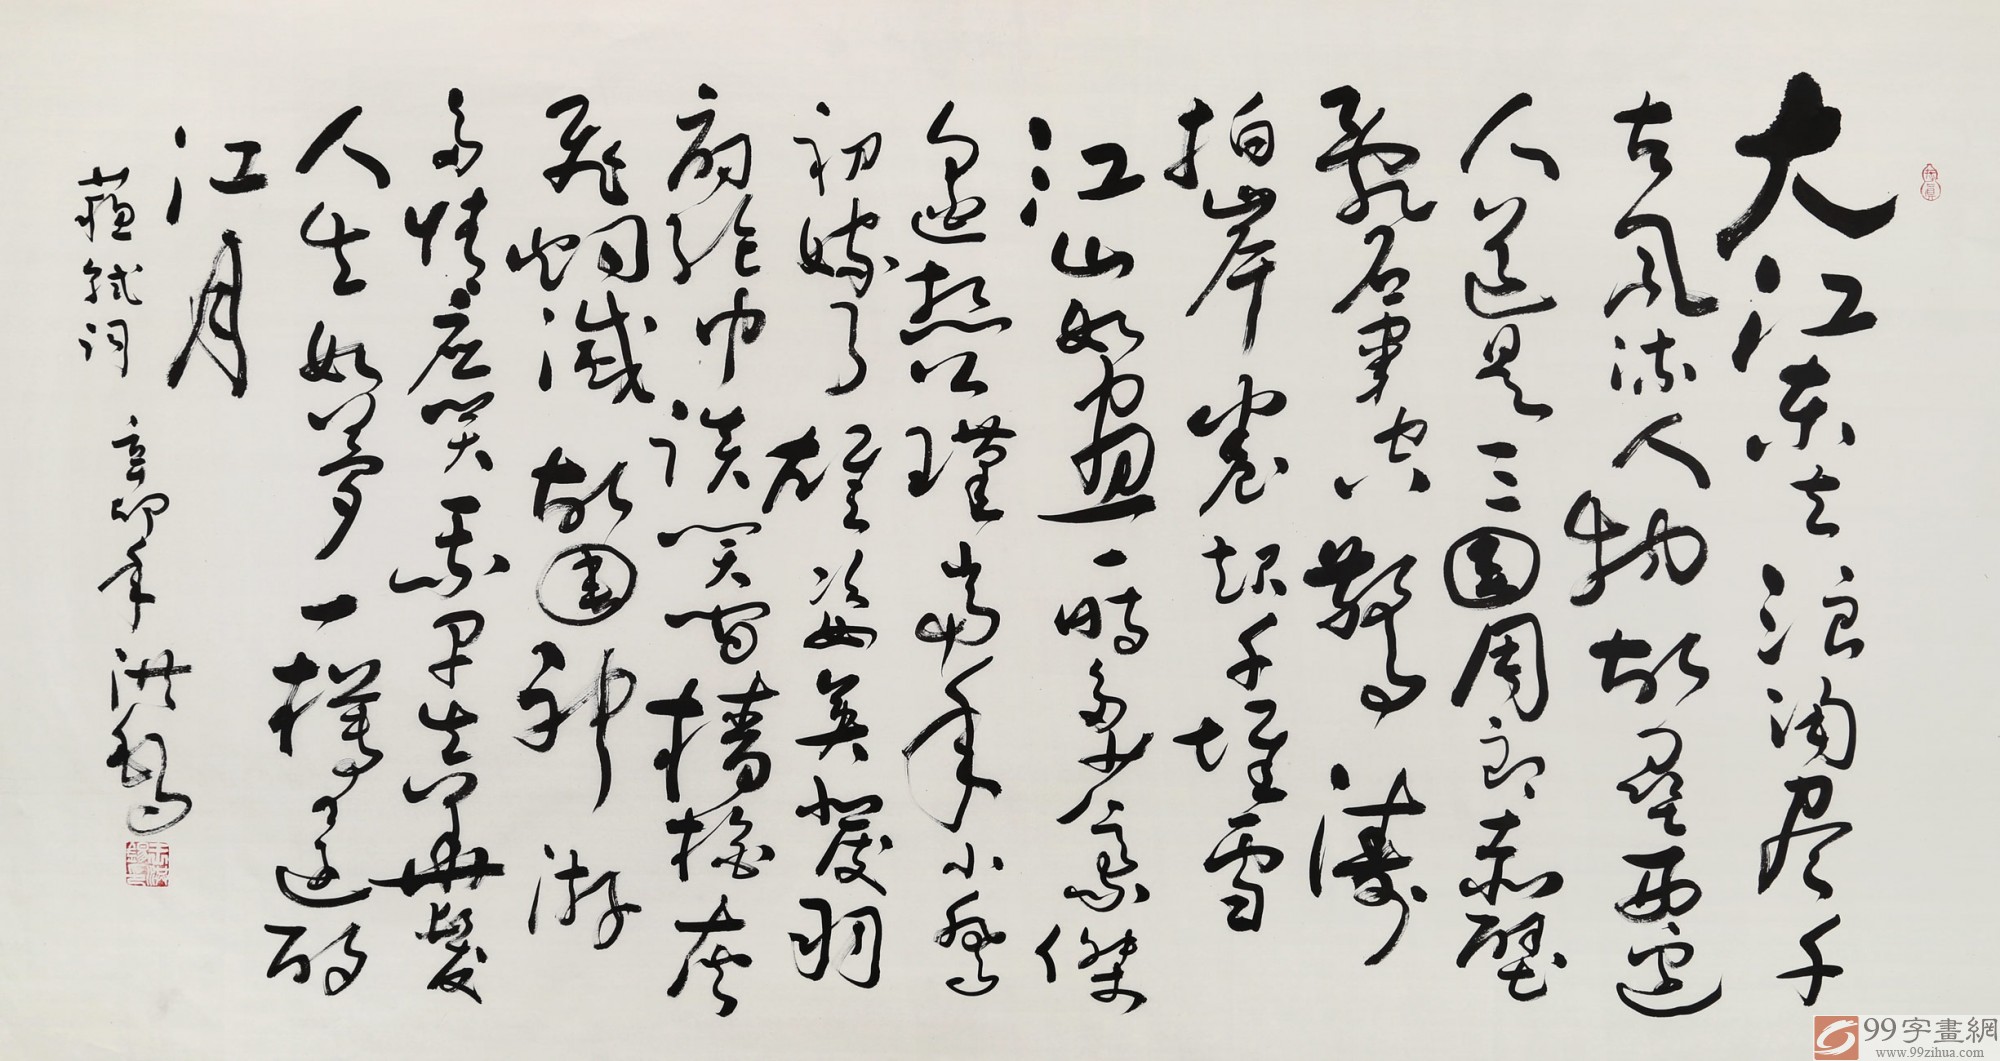 大江东去浪淘尽千
古风流人物故垒西边
人道是三國周郎赤壁
亂石穿空驚濤
拍岸卷起千堆雪
江山如画一時多少豪傑
遥想公瑾當年小喬
初嫁了雄姿英发羽
扇纶巾谈笑间檣櫓灰
飛烟滅故國神游
多情应笑我早生華髮
人生如夢一樽还酹
江月
蘇軾词 辛卯年 洪
99字畫網
www.99zihua.com